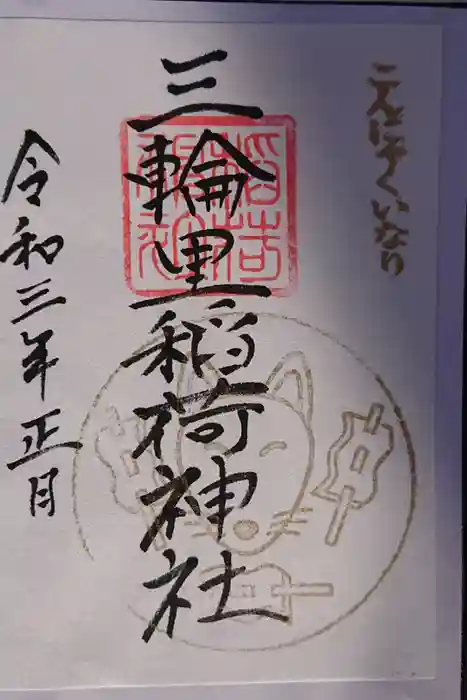 こんにやくいなり
三輪里稲荷神社
令和三年正月